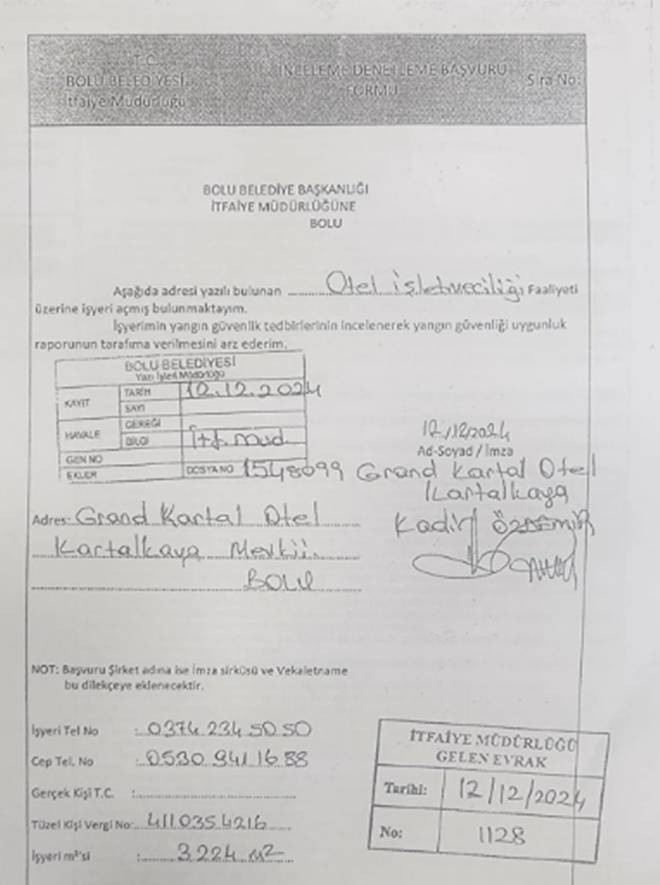 T.C.
BOLU BELEDİYESİ
İtfaiye Müdürlüğü
İNCELEME DENETLEME BAŞVURU
FORMU
Sıra No:
BOLU BELEDİYE BAŞKANLIĞI
İTFAİYE MÜDÜRLÜĞÜNE
BOLU
Aşağıda adresi yazılı bulunan Otel işletmeciliği Faaliyeti
üzerine işyeri açmış bulunmaktayım.
İşyerimin yangın güvenlik tedbirlerinin incelenerek yangın güvenliği uygunluk
raporunun tarafıma verilmesini arz ederim.
BOLU BELEDİYESİ
Yazı İşleri Müdürlüğü
KAYIT TARİH 12.12.2024
SAYI
HAVALE GEREĞİ
BİLGİ İtf. Müd.
GEN NO
EKLER DOSYA NO 1548099
12/12/2024
Ad-Soyad / İmza
Grand Kartal Otel
Kartalkaya
Kadir ÖZDEMİR
Adres: Grand Kartal Otel
Kartalkaya Mevkii.
BOLU
NOT: Başvuru Şirket adına ise İmza sirküsü ve Vekaletname
bu dilekçeye eklenecektir.
İşyeri Tel No : 0374 234 50 50
Cep Tel. No : 0530 941 16 88
Gerçek Kişi T.C. :
Tüzel Kişi Vergi No: 4110354216
İşyeri m²'si : 3224 m²
İTFAİYE MÜDÜRLÜĞÜ
GELEN EVRAK
Tarihi: 12/12/2024
No: 1128